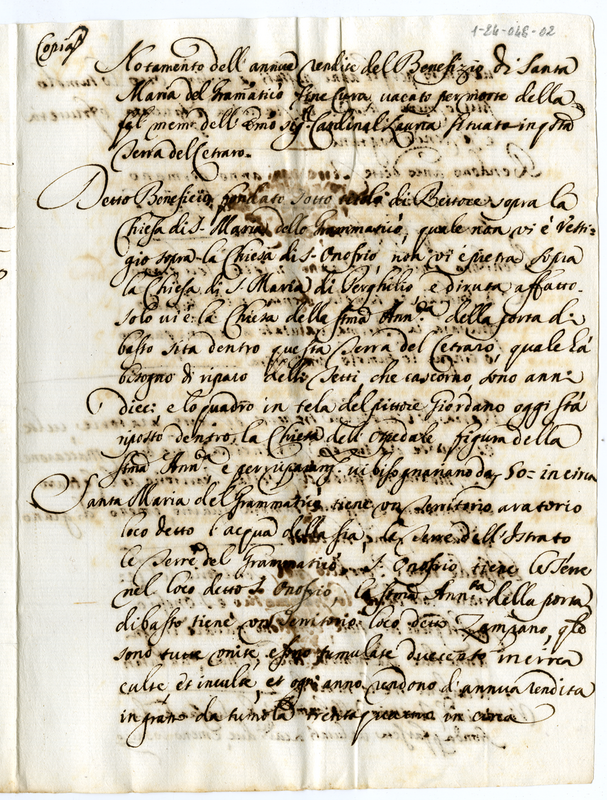 1-24-048-02
Copia
Notamento dell'annue rendite del Benefizio di Santa
Maria del Gramatico sine Cura vacato per morte della
fel. mem. dell'Emo Sig. Cardinal Lauria situato in qsta
Terra del Cetraro.
Detto Beneficio fondato sotto titolo di Rettore sopra la
Chiesa di S. Maria dello Grammatico, quale non vi è Vesti-
gio sopra la Chiesa di S. Onofrio non vi è pietra sopra
la Chiesa di S. Maria di è diruta affatto.
solo vi è la Chiesa della Sma Annta della porta di
basso sita dentro questa Terra del Cetraro, quale hà
bisogno di riparo delli Tetti, che cascorno sono anni
dieci, e lo quadro in tela del pittore Giordano oggi stà
riposto dentro la Chiesa dell'Ospedale, figura della
Sma Annta e per vi bisognariano da 50= in circa
Santa Maria del Grammatico tiene un Territorio aratorio
loco detto l'acqua della le Terre dell'Istrato
le Terre del Grammatico, S. Onofrio tiene le Terre
nel loco detto S. Onofrio, la Sma Annta della porta
di basso tiene un Territorio loco detto Zampano, qle
sono tutte unite, e sono tumulate duecento in circa
culte, et inculte, et ogni anno rendono d'annua rendita
in grano da tumola trenta in circa